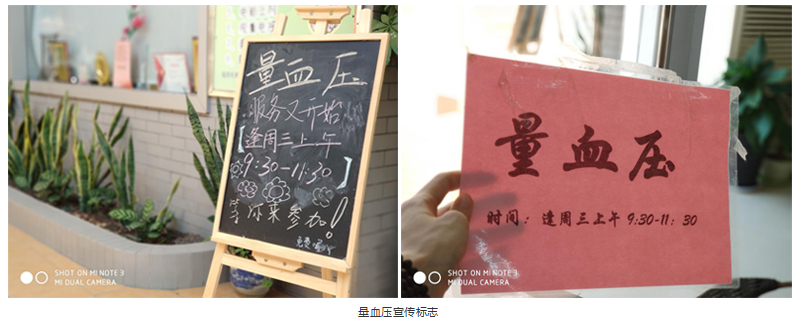 量血压
服务又开始
[逢周三上午
9:30-11:30]
等你来参加!
SHOT ON MI NOTE 3
MI DUAL CAMERA
量血压
时间：逢周三上午9:30-11：30
SHOT ON MI NOTE 3
MI DUAL CAMERA
量血压宣传标志